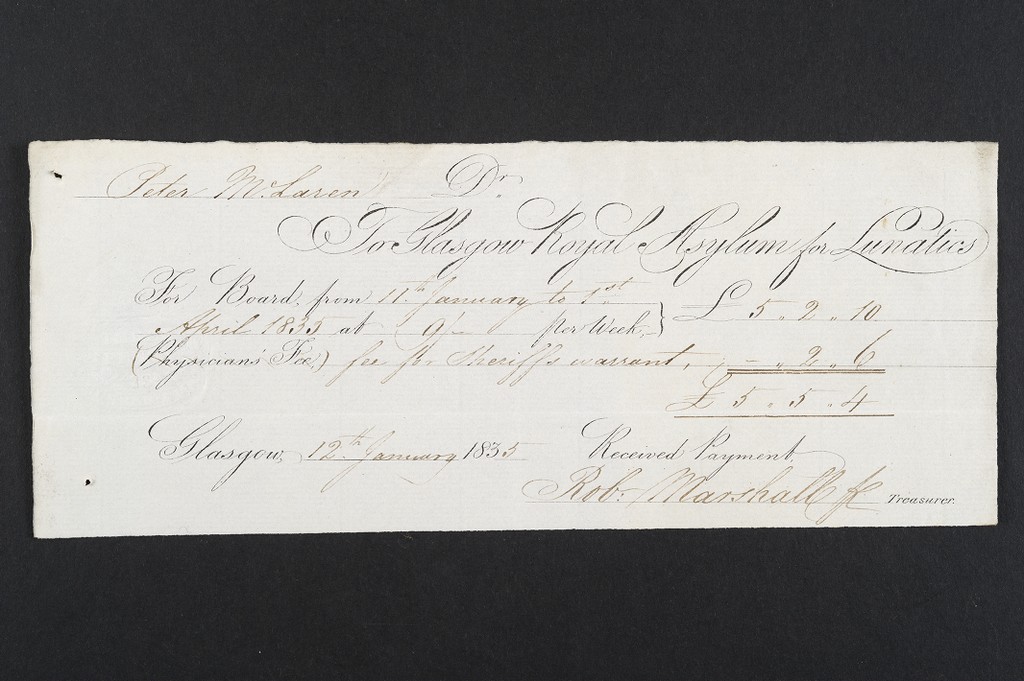 Peter McLaren Dr.
To Glasgow Royal Asylum for Lunatics
For Board, from 11th January to 1st
April 1835 at 9/- per Week, } £ 5 " 2 " 10
(Physician's Fee,) fee for Sheriff's warrant, - " 2 " 6
£ 5 " 5 " 4
Glasgow, 12th January 1835 Received Payment,
Rob: Marshall Treasurer.